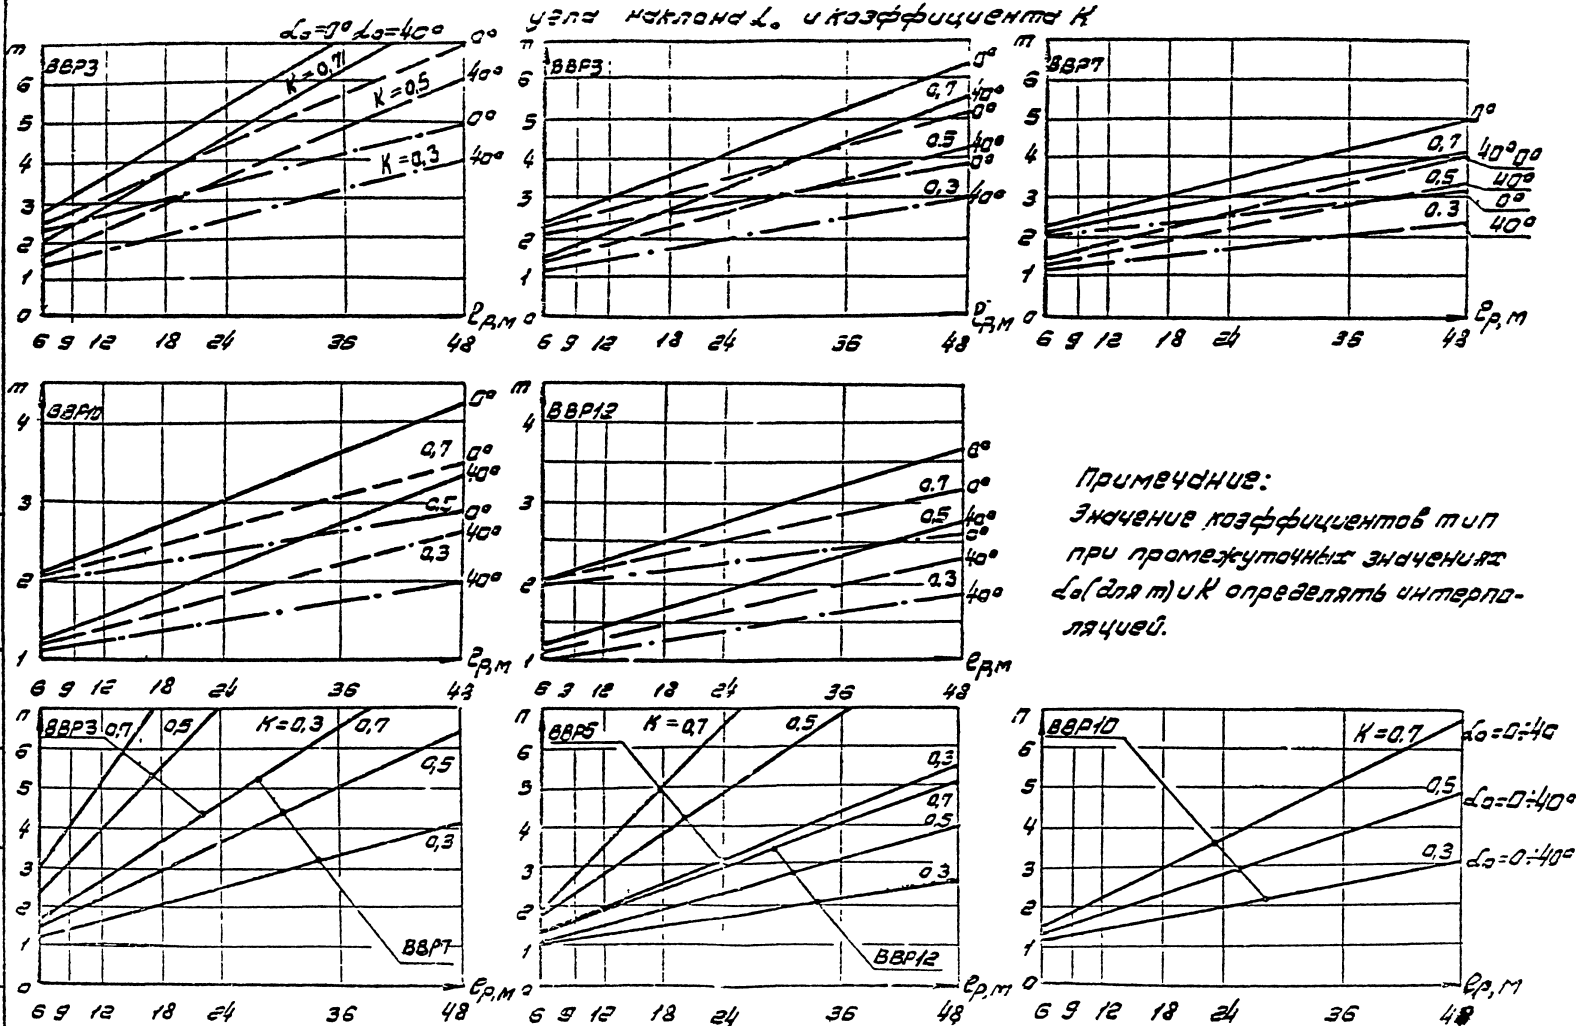 угла наклона α₀ и коэффициента К
α₀=0° α₀=40°
m
ВВР3
К=0,7
К=0,5
К=0,3
0°
40°
0°
40°
6
5
4
3
2
1
0
6 9 12 18 24 36 48
ℓр,м
m
ВВР3
0,7
0.5
0,3
0°
40°
0°
40°
0°
40°
6
5
4
3
2
1
0
6 9 12 18 24 36 48
ℓр,м
m
ВВР7
0,7
0,5
0.3
0°
40° 0°
40°
0°
40°
6
5
4
3
2
1
0
6 9 12 18 24 36 48
ℓр,м
m
ВВР10
0,7
0,5
0,3
0°
0°
40°
0°
40°
40°
4
3
2
1
6 9 12 18 24 36 48
ℓр,м
m
ВВР12
0.7
0,5
0,3
0°
0°
40°
0°
40°
40°
4
3
2
1
6 9 12 18 24 36 48
ℓр,м
Примечание:
Значение коэффициентов m и n
при промежуточных значениях
α₀(для m) и К определять интерпо-
ляцией.
n
ВВР3 0,7 0,5 К=0,3 0,7
0,5
0,3
ВВР7
6
5
4
3
2
1
0
6 9 12 18 24 36 48
ℓр,м
n
ВВР5 К=0,7 0,5
0,3
0,7
0,5
0,3
ВВР12
6
5
4
3
2
1
0
6 9 12 18 24 36 48
ℓр,м
n
ВВР10 К=0.7 α₀=0÷40
0,5 α₀=0÷40°
0,3 α₀=0÷40°
6
5
4
3
2
1
0
6 9 12 18 24 36 48
ℓр,м